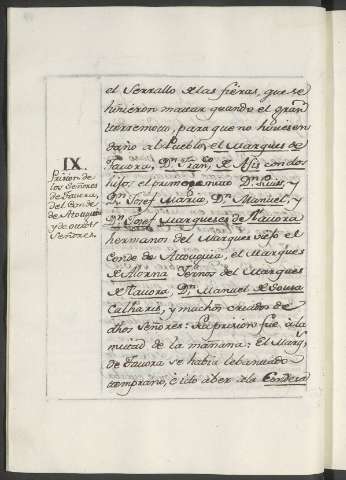 el Serrallo de las fieras, que se
hicieron matar quando el gran
terremoto, para que no hiciesen
daño al Pueblo, el Marques de
Tavora, Dn. Franco. de Asis con dos
hijos, el primogenito Dn. Luis, y
Dn. Josef Maria, Dn. Manuel, y
Dn. Josef Marqueses de Tavora
hermanos del Marques viejo el
Conde de Atouguia, el Marques
de Alorna Yernos del Marques
de Tavora, Dn. Manuel de Sousa
Calharis, y muchos criados de
dhos Señores: La prision fue a la
mitad de la mañana: El Marqs.
de Tavora se habia lebantado
temprano, e ido a ber a la Condesa
IX.
Prision de
los Señores
de Tavora,
del Conde
de Atouguia
y de otros
Señores.